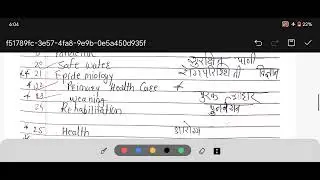 4:04
f51789fc-3e57-4fa8-9e9b-0e5a450d935f
20 Safe water सुरक्षित पानी
** 21 Epidemiology
* 22 Primary Health Care *
* 23 weaning पुरक आहार
24 Rehabilitation पुनर्वसन
* 25 Health आरोग्य